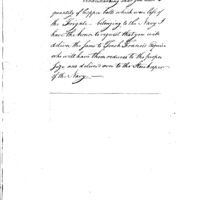 Understanding that you have a
quantity of Copper bolts which was left of
the Frigate – belonging to the Navy I
have the honor to request that you will
deliver the same to
who will have them reduced to the proper
size and deliver over to the Storekeeper
of the Navy. —